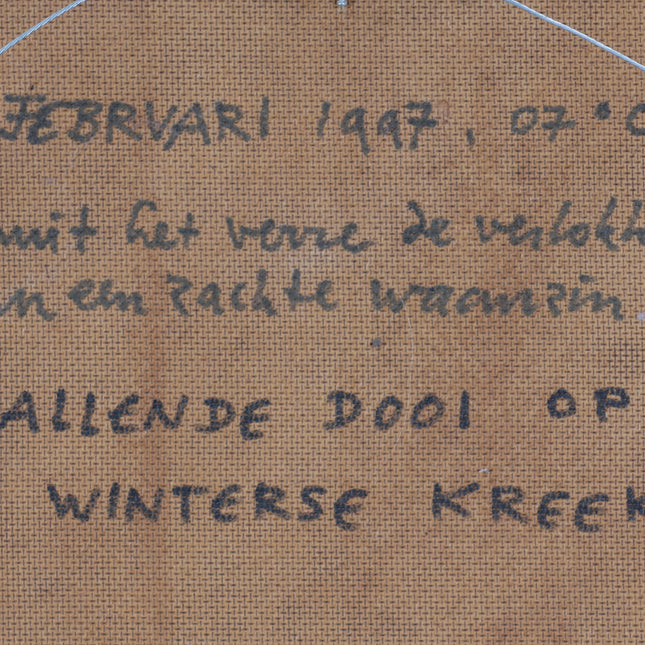 FEBRUARI 1997, 07°C
uit het verre de verlokt
an een zachte waanzin
ALLENDE DOOI OP
WINTERSE KREEK